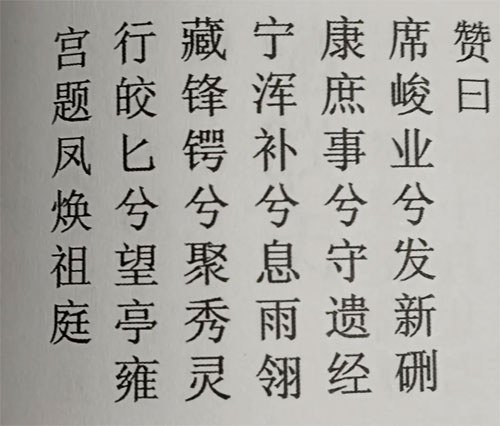 赞曰
席峻业兮发新硎
康庶事兮守遗经
宁浑补兮息雨翎
藏锋锷兮聚秀灵
行皎匕兮望亭雍
宫题凤焕祖庭